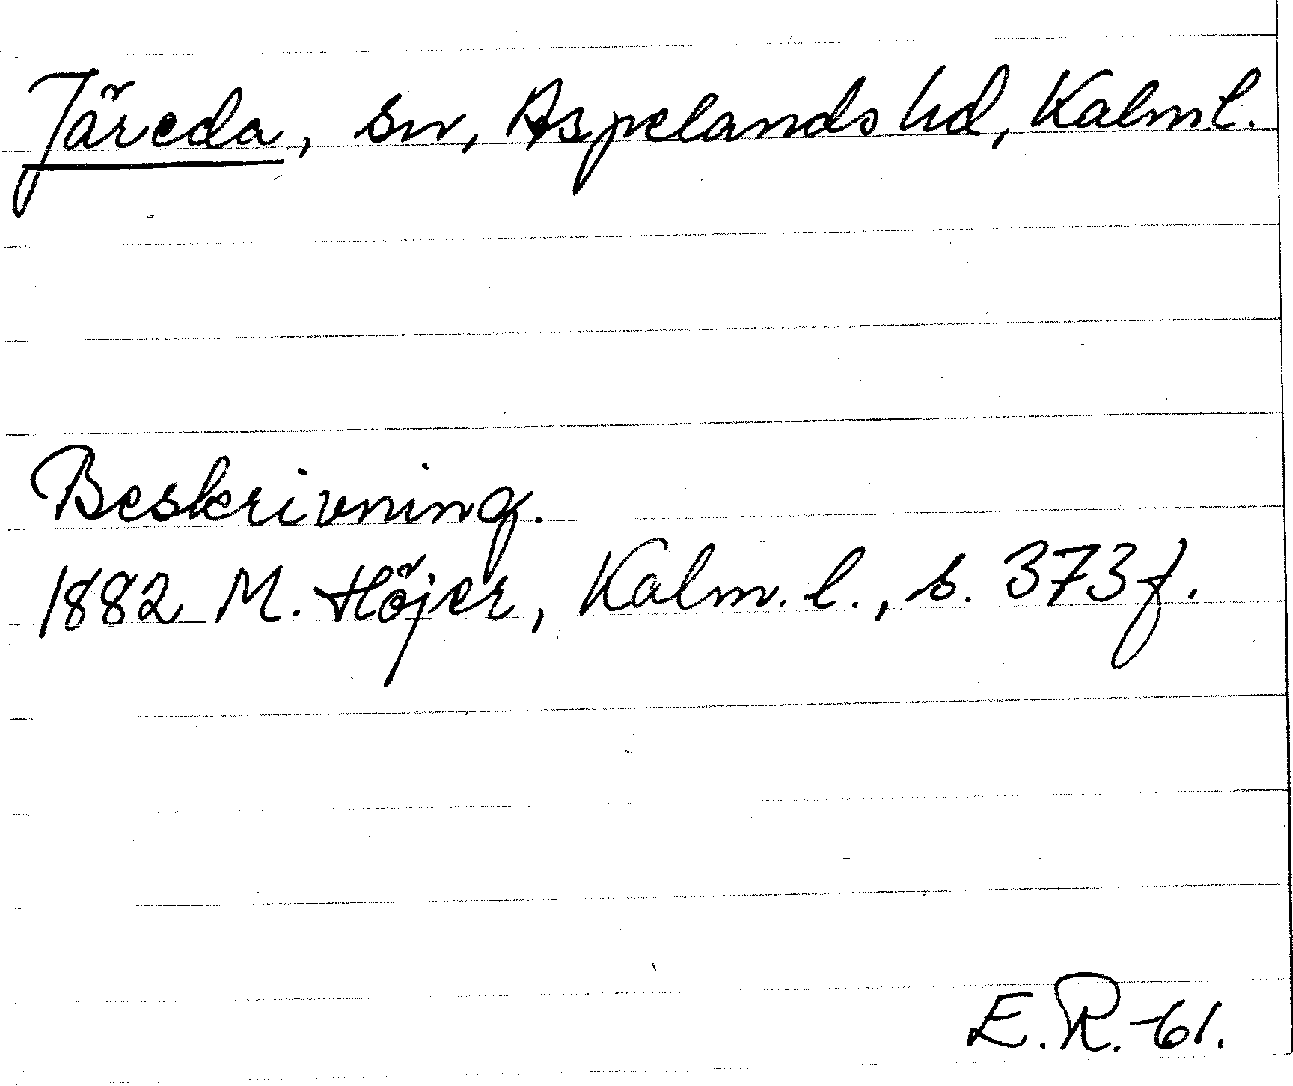 Järeda, sn, Aspelands hd, Kalm l.
Beskrivning.
1882 M. Höjer, Kalm. l., s. 373 f.
E. R. -61.